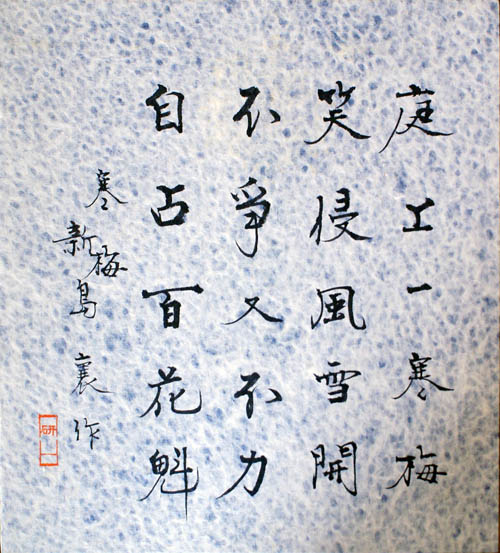 庭上一寒梅
笑侵風雪開
不爭又不力
自占百花魁
寒梅
新島襄作
研一